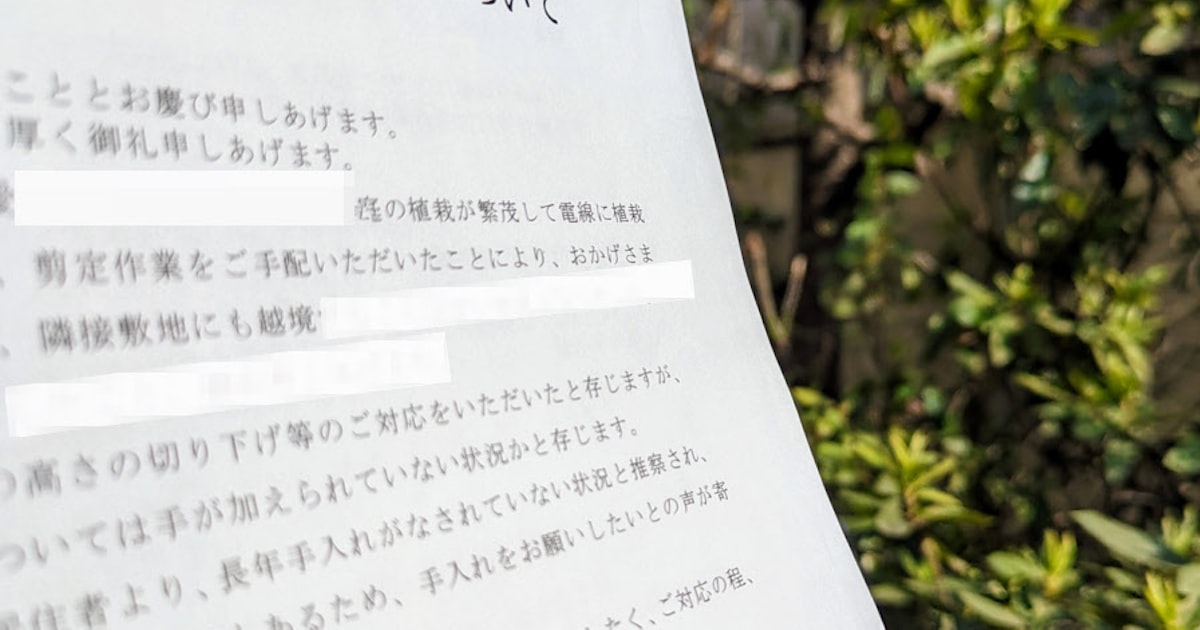 ついて
こととお慶び申しあげます。
厚く御礼申しあげます。
庭の植栽が繁茂して電線に植栽
、剪定作業をご手配いただいたことにより、おかげさま
、隣接敷地にも越境
高さの切り下げ等のご対応をいただいたと存じますが、
ついては手が加えられていない状況かと存じます。
住者より、長年手入れがなされていない状況と推察され、
あるため、手入れをお願いしたいとの声が寄
たく、ご対応の程、